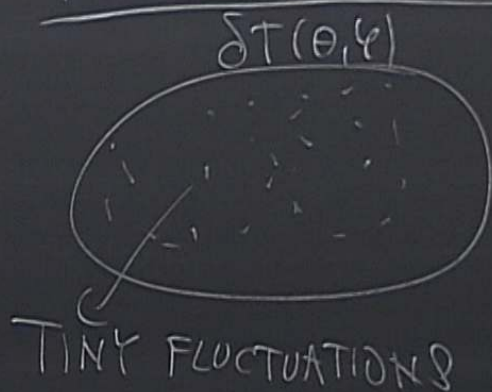 δT(θ,φ)
TINY FLUCTUATIONS